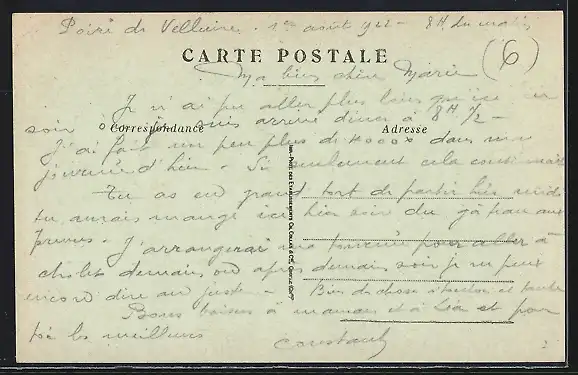 Poiré de Velluire. 1er août 922 - 8H du matin
CARTE POSTALE
(6)
Ma bien chère Marie
Je n'ai pu aller plus loin qu'ici hier
soir où je suis arrivé diner à 8H 1/2 -
Correspondance
Adresse
J'ai fait un peu plus de dans ma
journée d'hier. Si seulement cela
Tu as eu grand tort de partir hier midi
tu aurais mangé ici hier soir du gâteau aux
prunes. J'arrangerai ma tournée pour aller à
cholet demain ou après demain soir je ne peux
encore dire au juste - Bien de chose et tante
Bons baisers à maman et à Léa et pour
toi les meilleurs
Constant